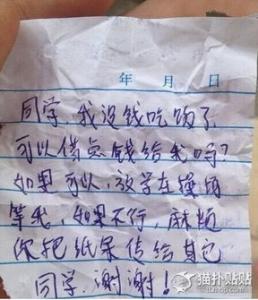 年 月 日
同学,我没钱吃饭了.
可以借点钱给我吗?
如果可以,放学在操场
等我,如果不行,麻烦
你把纸条传给其它
同学.谢谢!
猫扑贴贴
tt.mop.com